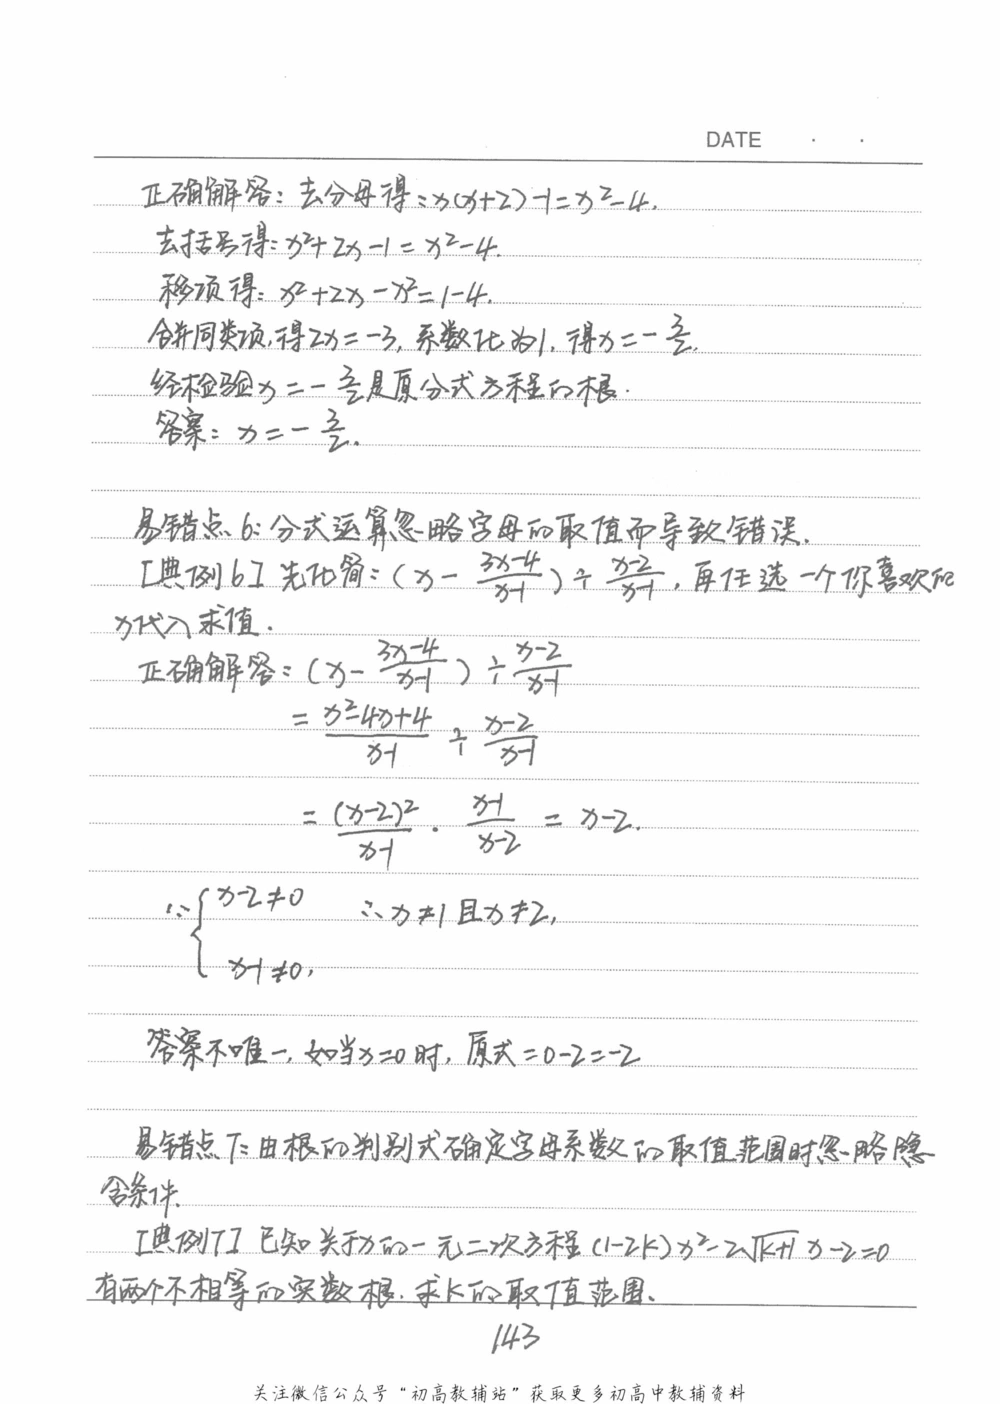 DATE · ·
正确解答：去分母得：x(x+2)-1=x²-4.
去括号得：x²+2x-1=x²-4.
移项得：x²+2x-x²=1-4.
合并同类项，得2x=-3，系数化为1，得x=-3/2.
经检验x=-3/2是原分式方程的根.
答案：x=-3/2.
易错点6：分式运算忽略字母的取值而导致错误.
[典例6] 先化简：(x-(3x-4)/(x-1))÷(x-2)/(x-1)，再任选一个你喜欢的
x代入求值.
正确解答：(x-(3x-4)/(x-1))÷(x-2)/(x-1)
=(x²-4x+4)/(x-1)÷(x-2)/(x-1)
=(x-2)²/(x-1)·(x-1)/(x-2)=x-2.
∵{x-2≠0 ∴x≠1且x≠2,
x-1≠0,
答案不唯一，如当x=0时，原式=0-2=-2
易错点7：由根的判别式确定字母系数的取值范围时忽略隐
含条件.
[典例7] 已知关于x的一元二次方程(1-2k)x²-2√(k+1)x-2=0
有两个不相等的实数根.求k的取值范围.
143
关注微信公众号“初高教辅站”获取更多初高中教辅资料